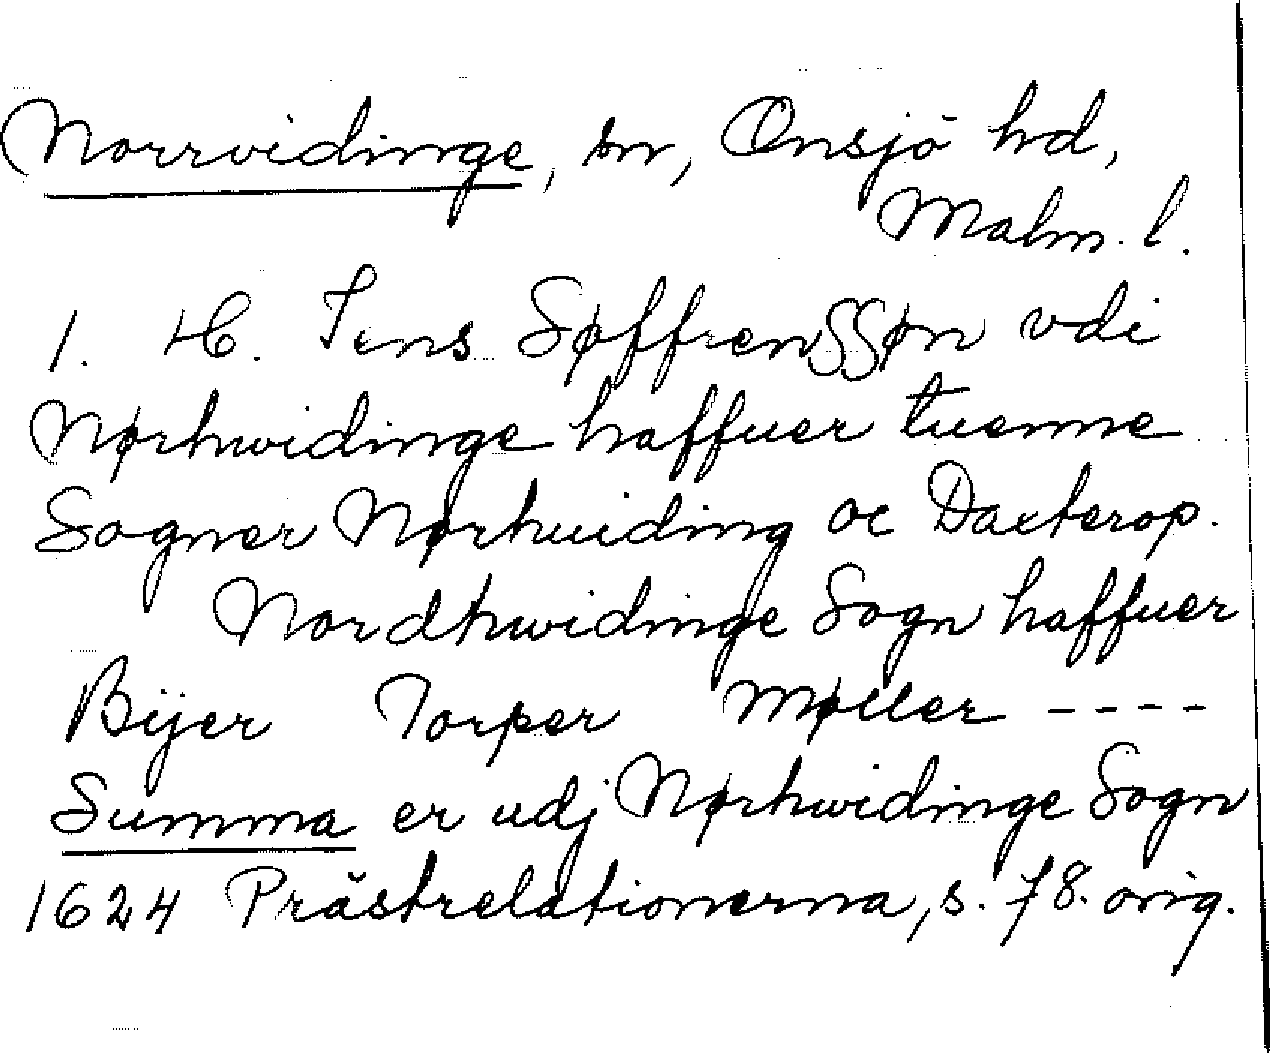 Norrvidinge, sn, Onsjö hd,
Malm. l.
1. H. Jens Søffrenssøn vdi
Nørhwidinge haffuer tuenne
Sogner Nørhuiding oc Daxterop.
Nordhwidinge Sogn haffuer
Bijer Torper Møller ----
Summa er udj Nørhwidinge Sogn
1624 Prästrelationerna, s. 78. orig.